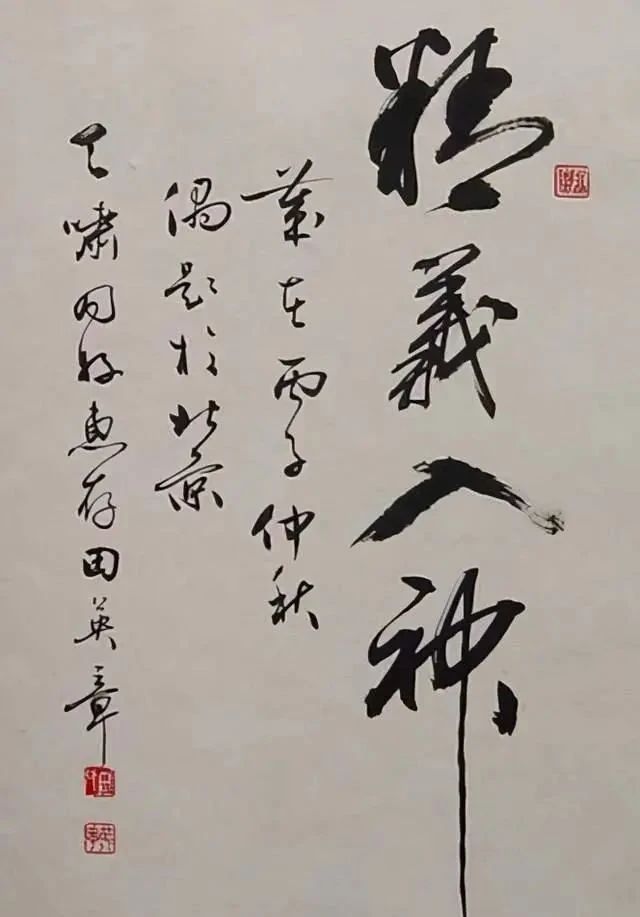 精義入神
歲在丙子仲秋
偶題於北京
天嘯同好惠存田英章